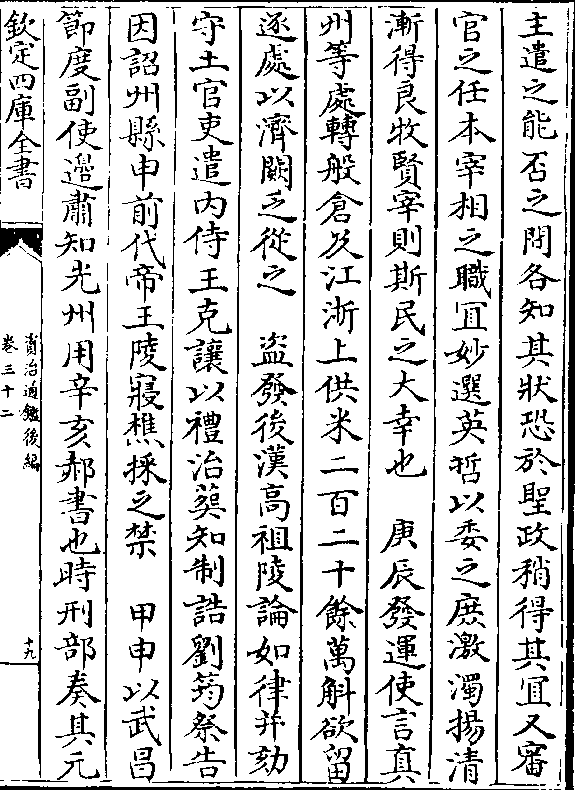 主遣之能否之間各知其狀恐於聖政稍得其宜又審
官之任本宰相之職宜妙選英哲以委之庶激濁揚清
漸得良牧賢宰則斯民之大幸也　庚辰發運使言真
州等處轉般倉及江浙上供米二百二十餘萬斛欲留
逐處以濟闕乏從之　盜發後漢高祖陵論如律并劾
守土官吏遣内侍王克讓以禮治葬知制誥劉筠祭告
因詔州縣申前代帝王陵寢樵採之禁　甲申以武昌
節度副使邊肅知光州用辛亥郝書也時刑部奏其元
欽定四庫全書
資治通鑑後編
卷三十二
十九